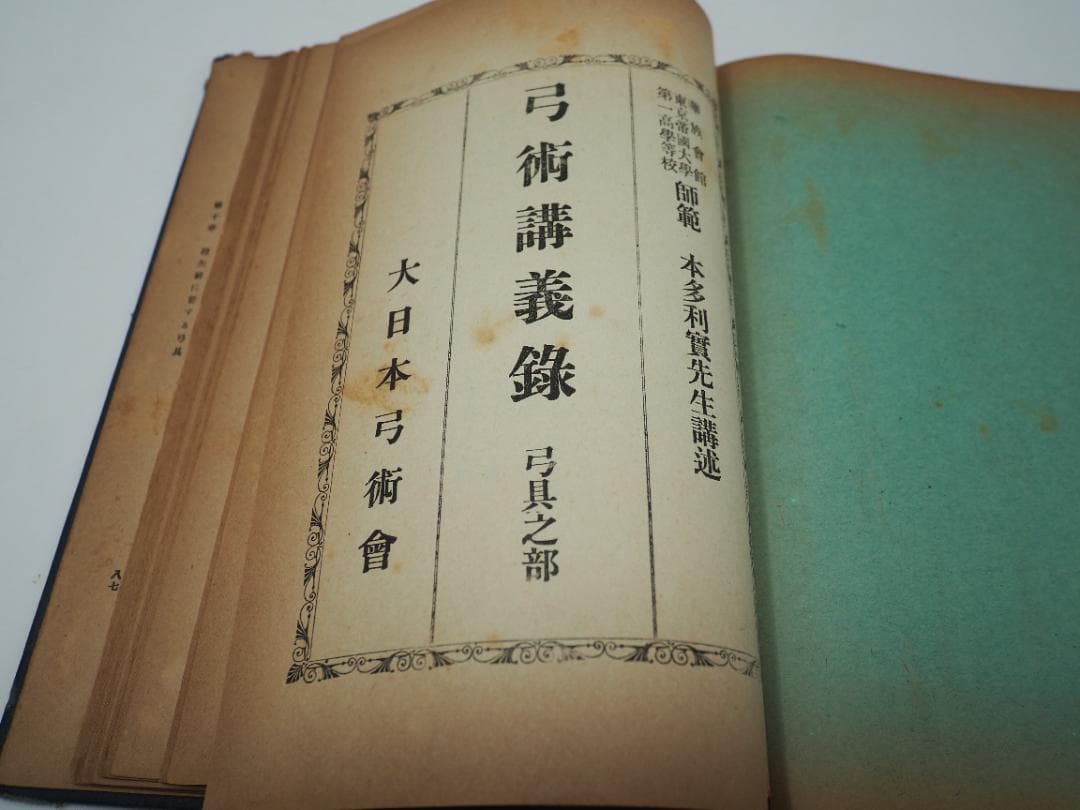 華族會館
東京帝國大學
第一高學等校
師範 本多利實先生講述
弓術講義錄 弓具之部
大日本弓術會
八七